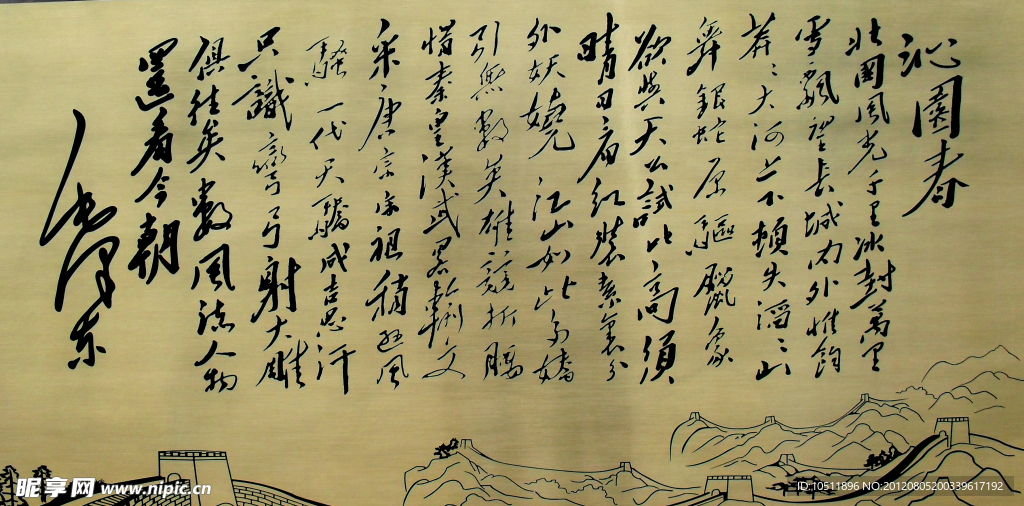 沁園春
北國風光千里冰封萬里
雪飄望長城内外惟餘
莽〻大河上下頓失滔〻山
舞銀蛇原驅臘象
欲與天公試比高須
晴日看紅裝素裹分
外妖嬈 江山如此多嬌
引無數英雄競折腰
惜秦皇漢武略輸文
采唐宗宋祖稍遜風
騷 一代天驕成吉思汗
只識彎弓射大雕
俱往矣數風流人物
還看今朝
毛澤東
昵享网 www.nipic.cn
ID:10511896 NO:20120805200339617192